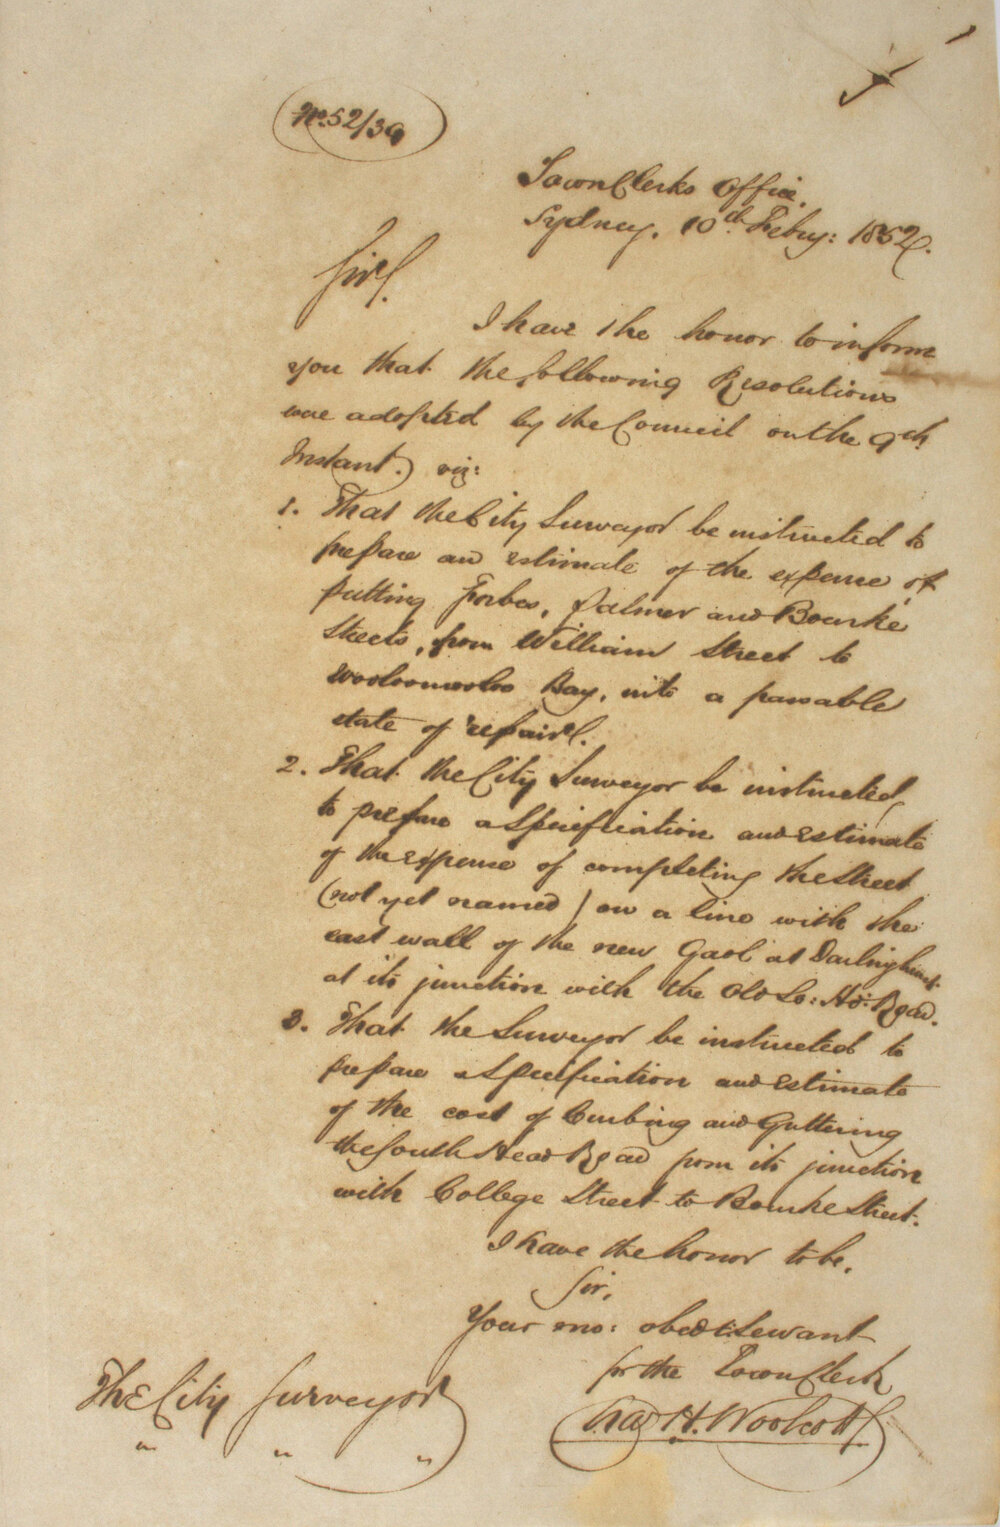 No. 52/39
Town Clerks Office,
Sydney, 10th Febry: 1852.
Sir,
I have the honor to inform
you that the following Resolutions
were adopted by the Council on the 9th
Instant. viz:
1. That the City Surveyor be instructed to
prepare an estimate of the expense of
putting Forbes, Palmer and Bourke
Streets, from William Street to
Wooloomooloo Bay, into a passable
state of repair.
2. That the City Surveyor be instructed
to prepare a Specification and estimate
of the expense of completing the Street
(not yet named) on a line with the
east wall of the new Gaol at Darlinghurst
at its junction with the Old So: Hd: Road.
3. That the Surveyor be instructed to
prepare a Specification and estimate
of the cost of Curbing and Guttering
the South Head Road from its junction
with College Street to Bourke Street.
I have the honor to be,
Sir,
Your mo: obedt. Servant
for the Town Clerk
Chas H. Woolcott
The City Surveyor
" " "